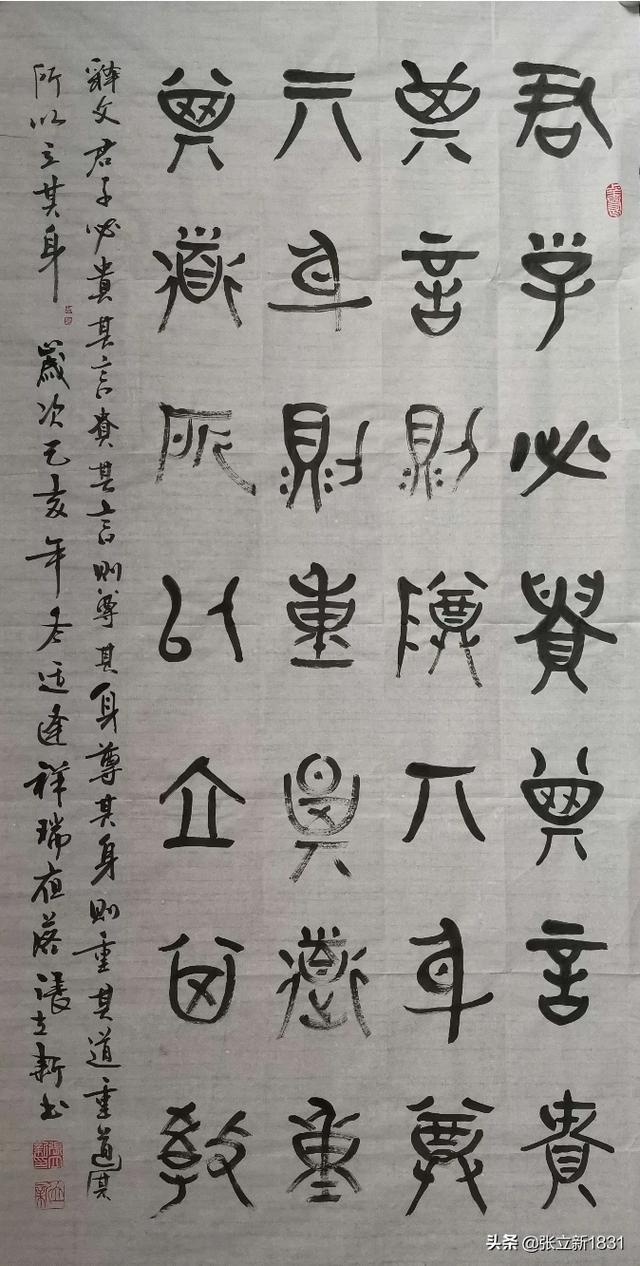 君子必貴其言貴
其言則尊其身尊
其身則重其道重
其道所以立其教
釋文君子必貴其言貴其言則尊其身尊其身則重其道重道其
所以立其身 歲次己亥年冬适逢祥瑞夜落張立新書
头条 @张立新1831